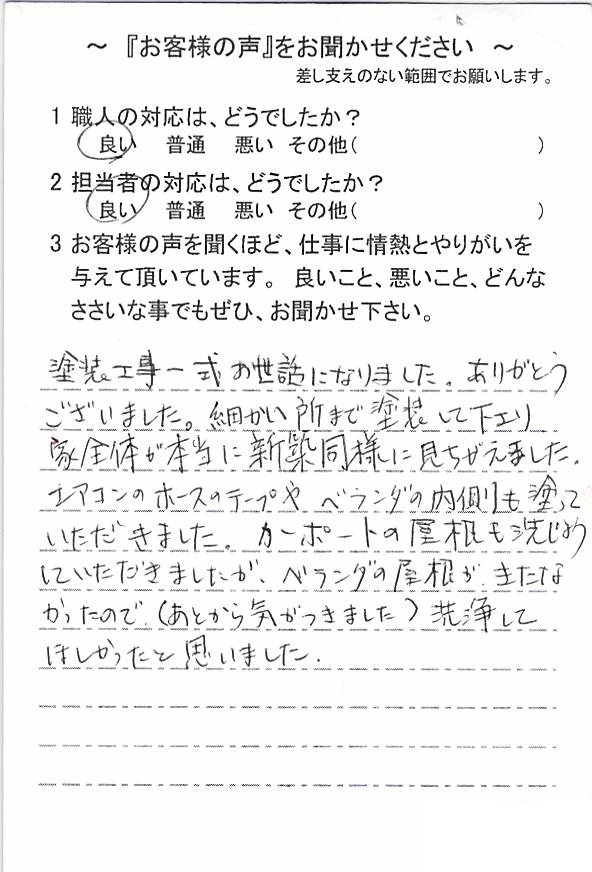 ～ 『お客様の声』をお聞かせください ～
差し支えのない範囲でお願いします。
1 職人の対応は、どうでしたか？
良い 普通 悪い その他（ ）
2 担当者の対応は、どうでしたか？
良い 普通 悪い その他（ ）
3 お客様の声を聞くほど、仕事に情熱とやりがいを
与えて頂いています。 良いこと、悪いこと、どんな
ささいな事でもぜひ、お聞かせ下さい。
塗装工事一式お世話になりました。ありがとう
ございました。細かい所まで塗装して下さり
家全体が本当に新築同様に見ちがえました。
エアコンのホースのテープや ベランダの内側も塗って
いただきました。カーポートの屋根も洗じょう
していただきましたが、ベランダの屋根が、きたな
かったので、（あとから気がつきました）洗浄して
ほしかったと思いました。